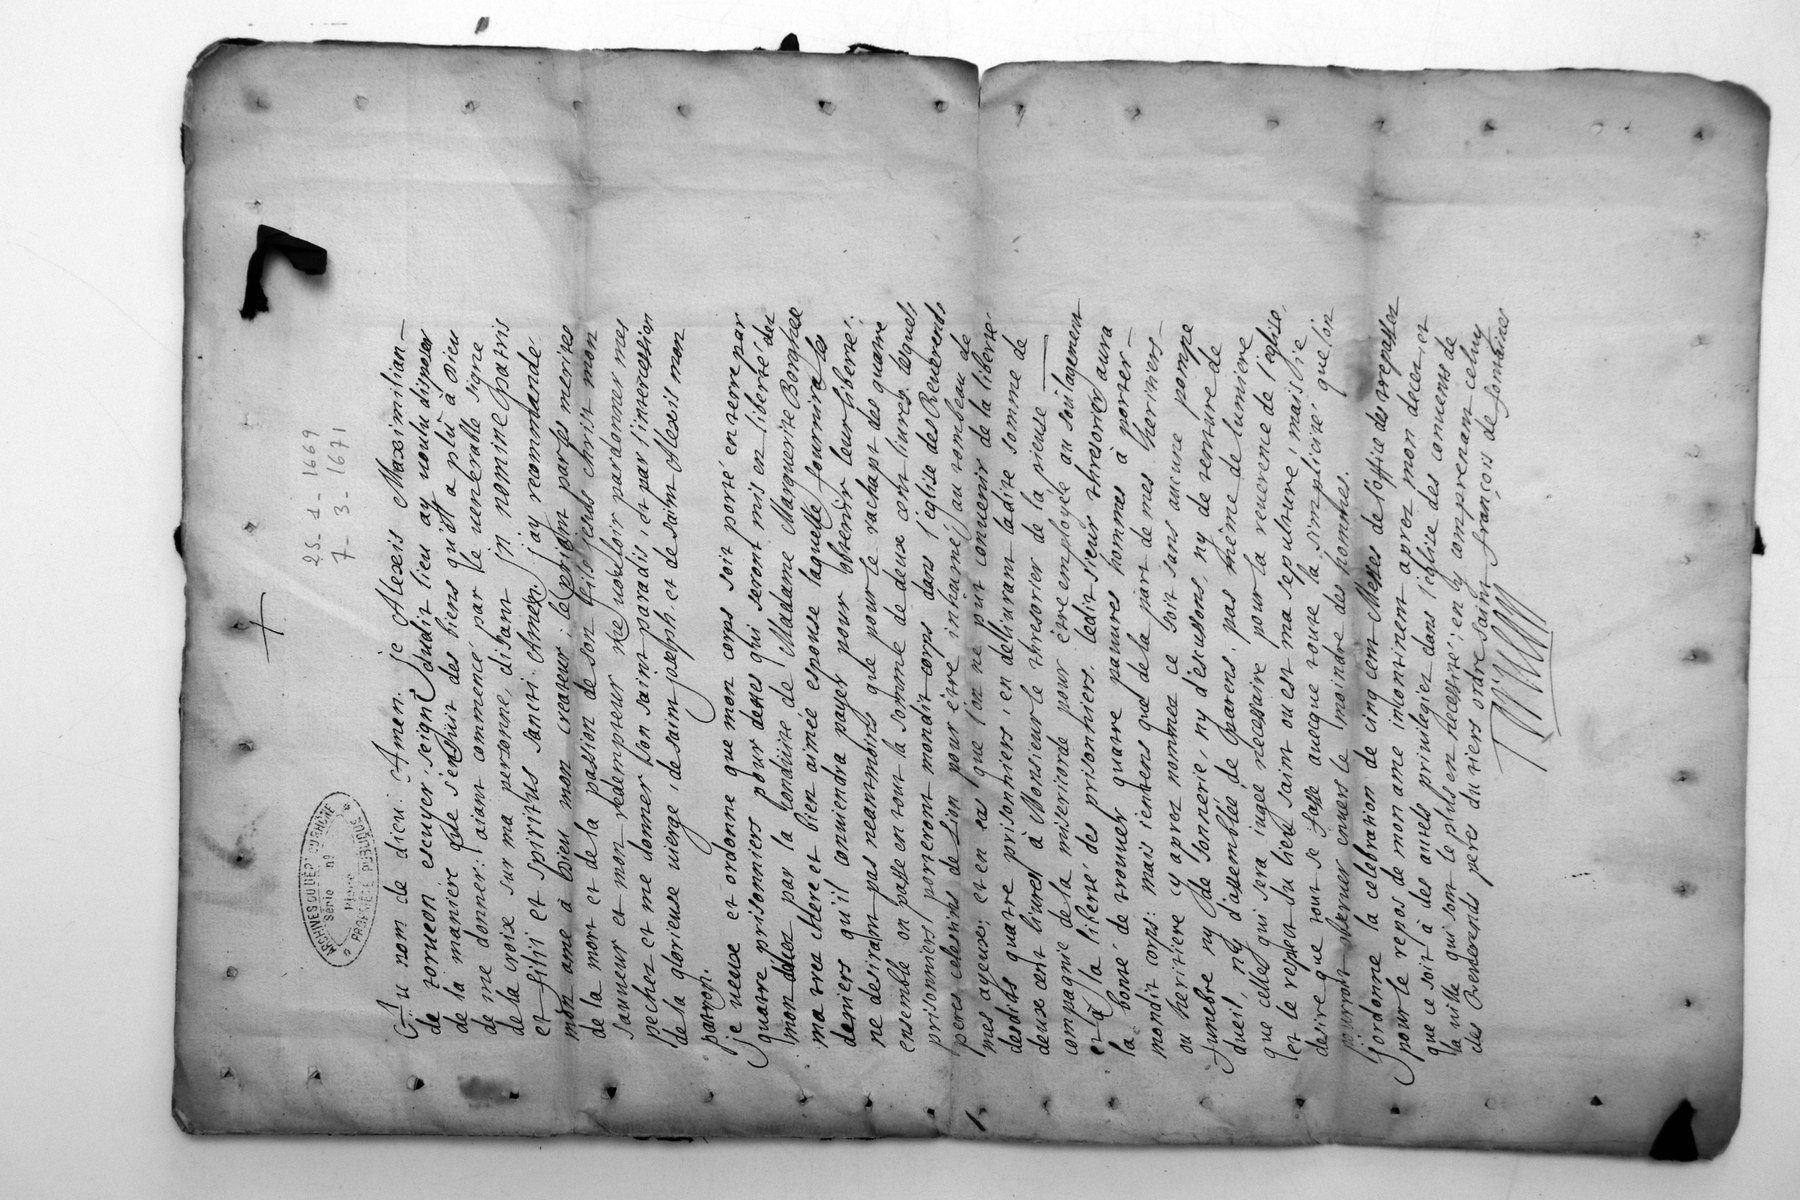 +
25-1-1669
7-3-1671
ARCHIVES DU DÉPT DU RHÔNE
Série nº
Pièce
PROPRIÉTÉ PUBLIQUE
Au nom de dieu. Amen. je Alexis Maximilian
de torueon escuyer, seignr dudit lieu ay uoulu disposer
de la maniere que s'ensuit des biens qu'il a plû à Dieu
de me donner: aiant commencé par le uenerable signe
de la croix sur ma personne, disant jn nomine patris
et filii et spiritus sancti. Amen. j'ay recommandé
mon ame à Dieu mon createur, le priant par les merites
de la mort et de la passion de son fils jesus christ mon
sauueur et mon redempteur me uouloir pardonner mes
pechez et me donner son saint paradis, et par l'intercession
de la glorieuse uierge, de saint joseph. et de saint Alexil mon
patron.
je ueux et ordonne que mon corps soit porté en terre par
quatre prisonniers pour qui seront mis en liberté des
par la conduitte de Madame Marguerite Borghese
ma tres chere et bien aimée espouse laquelle fournira les
deniers qu'il conuiendra payer pour obtenir leur liberté:
ne desirant pas neantmoins que pour le rachapt des quatre
ensemble on passe en tout la somme de deux cent liures. lequels
prisonniers porteront mondit corps dans l'eglise des Reuerends
peres celestins de Lion pour être inhumé au tombeau de
mes ayeux; et en cas que l'on ne put conuenir de la liberté
desdits quatre prisonniers, en deliurant ladite somme de
deux cent liures à Monsieur le thresorier de la pieuse
compagnie de la misericorde pour être employée au soulagement
et à la liberté des prisonniers. ledit sieur thresorier aura
la bonté de trouuer quatre pauures hommes à porter
mondit corps: mais ientens que de la part de mes heritiers
ou heritiere cy aprez nommez ce soit sans aucune pompe
funebre ny de sonnerie, ny d'escussons, ny de tenture de
dueil, ny d'assemblée de parens, pas même de lumiere
que celles qui sera iugée necessaire pour la reuerence de l'eglise
et le respect du lieu saint ou est ma sepulture, mais ie
desire que tout se fasse auecque toute la simplicité que l'on
pourrait obseruer enuers le moindre des hommes.
j'ordonne la celebration de cinq cent Messes de l'office des trepassez
pour le repos de mon ame incontinent aprez mon decez, et
que ce soit à des autels priuilegiez dans l'eglise des conuens de
la uille qui sont le plus en necessité; en ly comprenant celuy
des Reuerends peres du tiers ordre saint françois de
1.